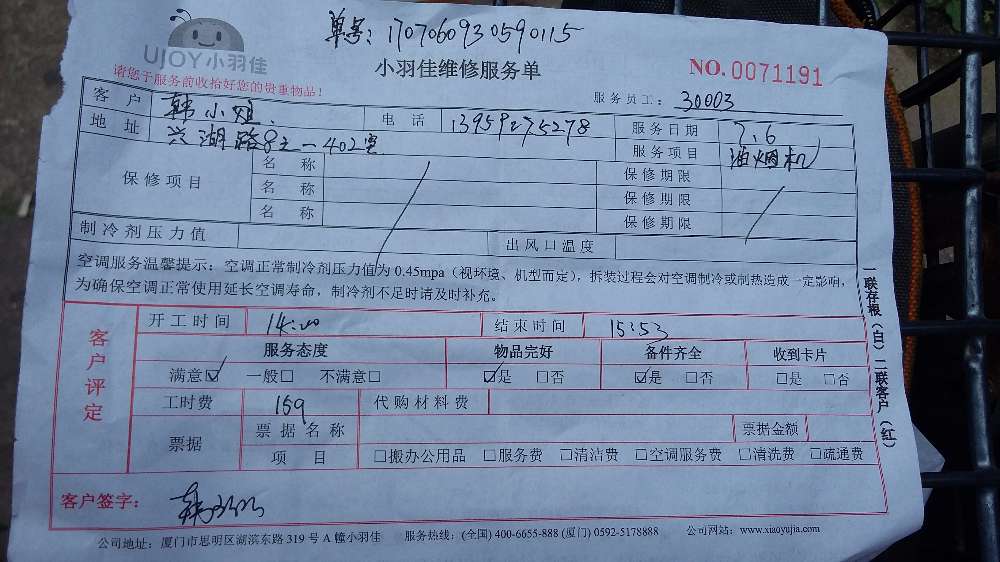 单号：1707060930590115
UJOY小羽佳
小羽佳维修服务单
NO.0071191
请您于服务前收拾好您的贵重物品！
服务员工：30003
客户 韩小姐. 电话 13959275278 服务日期 7.6
地址 兴湖路8之一402室 服务项目 油烟机
保修项目 名称 保修期限
名称 保修期限
名称 保修期限
制冷剂压力值 出风口温度
空调服务温馨提示：空调正常制冷剂压力值为0.45mpa（视环境、机型而定），拆装过程会对空调制冷或制热造成一定影响，
为确保空调正常使用延长空调寿命，制冷剂不足时请及时补充。
客户评定
开工时间 14:00 结束时间 15:53
服务态度 物品完好 备件齐全 收到卡片
满意☑ 一般□ 不满意□ ☑是 □否 ☑是 □否 □是 □否
工时费 159 代购材料费
票据 票据名称 票据金额
项目 □搬办公用品 □服务费 □清洁费 □空调服务费 □清洗费 □疏通费
客户签字：
一联存根（白）二联客户（红）
公司地址：厦门市思明区湖滨东路319号A幢小羽佳 服务热线：(全国) 400-6655-888 (厦门) 0592-5178888 公司网站：www.xiaoyujia.com